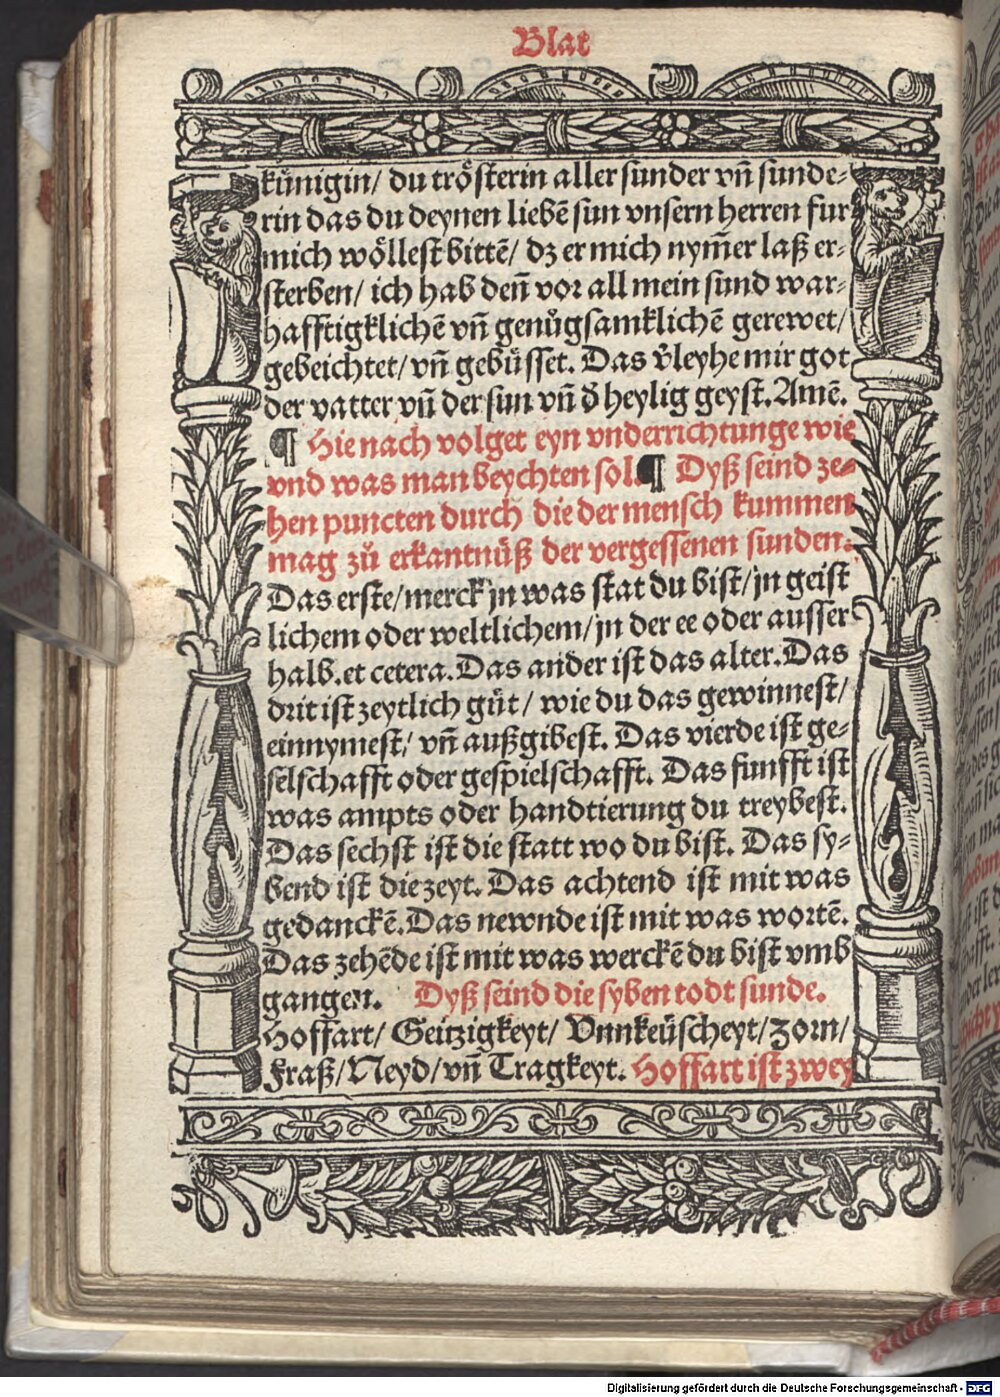 Blat
künigin/ du trösterin aller sunder vñ sunde⸗
rin das du deynen liebē sun vnsern herren fur
mich wöllest bittē/ dz er mich nym̄er laß er⸗
sterben/ ich hab deñ vor all mein sund war⸗
hafftigklichē vñ genůgsamklichē gerewet/
gebeichtet/ vñ gebüsset. Das v̓leyhe mir got
der vatter vñ der sun vñ d̓ heylig geyst. Amē.
¶ Hie nach volget eyn vnderrichtunge wie
vnd was man beychten sol. ¶ Dyß seind ze⸗
hen puncten durch die der mensch kummen
mag zů erkantnüß der vergessenen sunden.
Das erste/ merck jn was stat du bist/ jn geist
lichem oder weltlichem/ jn der ee oder ausser
halb. et cetera. Das ander ist das alter. Das
drit ist zeytlich gůt/ wie du das gewinnest/
einnymest/ vñ außgibest. Das vierde ist ge⸗
selschafft oder gespielschafft. Das funfft ist
was ampts oder handtierung du treybest.
Das sechst ist die statt wo du bist. Das sy⸗
bend ist die zeyt. Das achtend ist mit was
gedanckē. Das newnde ist mit was wortē.
Das zehēde ist mit was werckē du bist vmb
gangen. Dyß seind die syben todt sunde.
Hoffart/ Geitzigkeyt/ Vnnkeüscheyt/ Zorn/
Fraß/ Neyd/ vñ Tragkeyt. Hoffart ist zwey
Digitalisierung gefördert durch die Deutsche Forschungsgemeinschaft - DFG